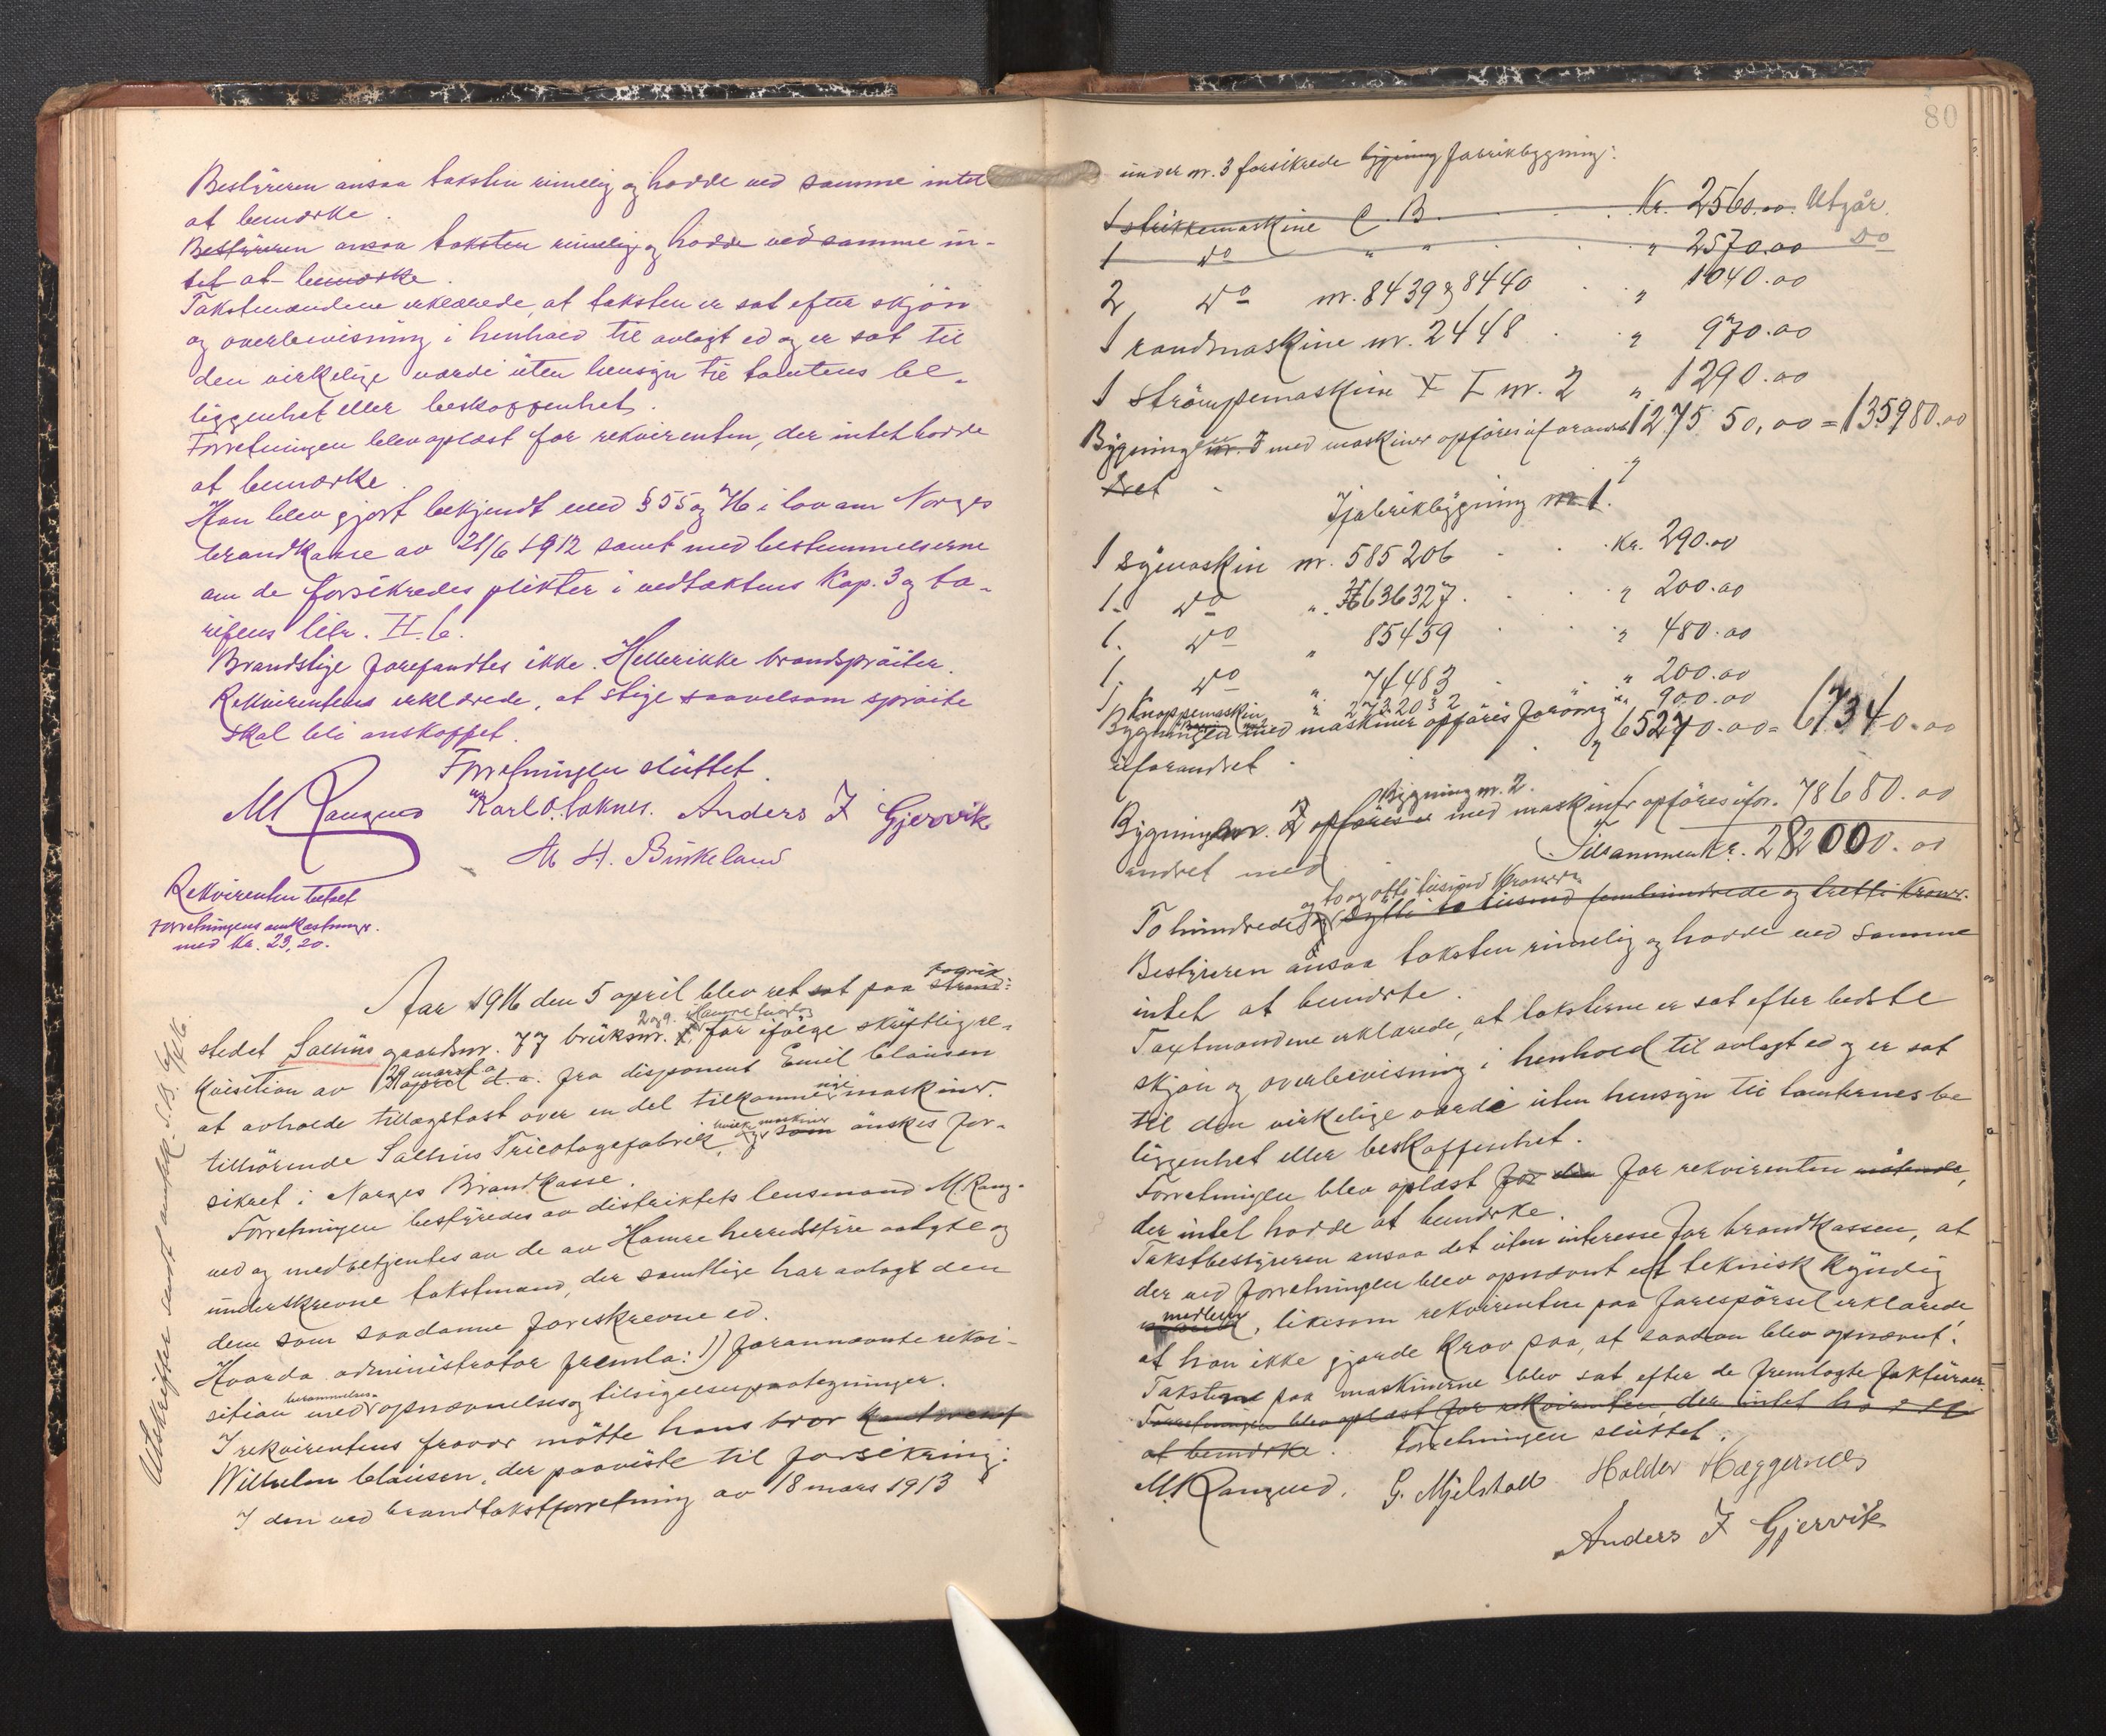 Bestyreren ansaa taksten rimelig og hadde ved samme intet
at bemærke.
Bestyreren ansaa taksten rimelig og hadde ved samme in-
tet at bemærke.
Takstmændene erklærede, at taksten er sat efter skjøn
og overbevisning i henhold til avlagt ed og er sat til
den virkelige værdi uten hensyn til tomtens be-
liggenhet eller beskaffenhet.
Forretningen blev oplæst for rekvirenten, der intet hadde
at bemærke.
Han blev gjort bekjendt med § 55 og 76 i lov om Norges
brandkasse av 21/6 1912 samt med bestemmelserne
om de forsikredes plikter i vedtæktens Kap. 3 og ta-
rifens litr. H. 6.
Brandstige forefandtes ikke. Heller ikke brandsprøiter.
Rekvirentens erklærede, at stige saavelsom sprøite
skal bli anskaffet.
Forretningen sluttet.
M Langund Karl O. Toknes. Anders J Gjervik
M H. Birkeland
Rekvirenten betalt
forretningens omkostninger
med Kr. 29,20.
Utskrifter sendt S.B. 6/4 16.
Aar 1916 den 5 april blev ret sat paa fabrik
stedet Salhus gaardsnr. 77 bruksnr. 2 og 9 i Hamre for ifølge skriftlig re-
kvisition av 29 marst d.a. fra disponent Emil Clausen
at avholde tillægstakst over en del tilkomne nye maskiner
tilhørende Salhus Tricotagefabrik, og som ønskes for-
sikret i Norges Brandkasse.
Forretningen bestyredes av distriktets lensmand M. Lang-
ved og medbetjentes av de av Hamre herredsstyre valgte og
underskrevne takstmænd, der samtlige har avlagt den
dem som saadanne foreskrevne ed.
Hvorda administrator fremla: 1) forannævnte rekvi-
sition med berammelses- opnævnelses og tilsigelsespaategninger.
I rekvirentens fravær møtte hans bror
Wilhelm Clausen, der paaviste til forsikring:
I den ved brandtakstforretning av 18 mars 1913
80
under nr. 3 forsikrede bygning fabrikbygning:
1 strikkemaskine C. B. Kr. 2560.00. Utgår.
1 do " " " 2570.00 do
2 do nr. 8439 og 8440 " 1040.00
1 randmaskine nr. 2448 " 970.00
1 Strømpemaskine F I nr. 2 " 1290.00
Bygningen nr. 3 med maskiner opføres uforand- 127550,00 = 135980.00
dret
I fabrikbygning nr 1.
1 symaskin nr. 585206 Kr. 290.00
1. do " H636327. " 200.00
1. do " 85459 " 480.00
1. do " 74483 " 200.00
1 Knappemaskin " 2732032 " 900.00
Bygningen med maskiner opføres forøvrig " 65270.00 = 67340.00
uforandret
Bygning nr. 2 opføres med maskiner opføres ufor- 78680.00
andret med Tilsammen Kr. 282000.00
To hundrede og to og otti tusind Kroner
og sytti to tusind femhundrede og tretti Kroner.
Bestyreren ansaa taksten rimelig og hadde ved samme
intet at bemærke.
Taxtmændene erklærede, at taksterne er sat efter bedste
skjøn og overbevisning i henhold til avlagt ed og er sat
til den virkelige værdi uten hensyn til tomternes be
liggenhet eller beskaffenhet.
Forretningen blev oplæst for den for rekvirenten møtende,
der intet hadde at bemærke.
Takstbestyreren ansaa det uten interesse for brandkassen, at
der ved forretningen blev opnævnt et teknisk kyndig
medlem, likesom rekvirenten paa forespørsel erklærede
at han ikke gjorde krav paa, at saadan blev opnævnt.
Taksterne paa maskinerne blev sat efter de fremlagte fakturaer.
Forretningen blev oplæst for rekvirenten, der intet hadde
at bemærke. Forretningen sluttet.
M. Langund. G. Mjelstad Haldor Hæggernæs
Anders J Gjervik